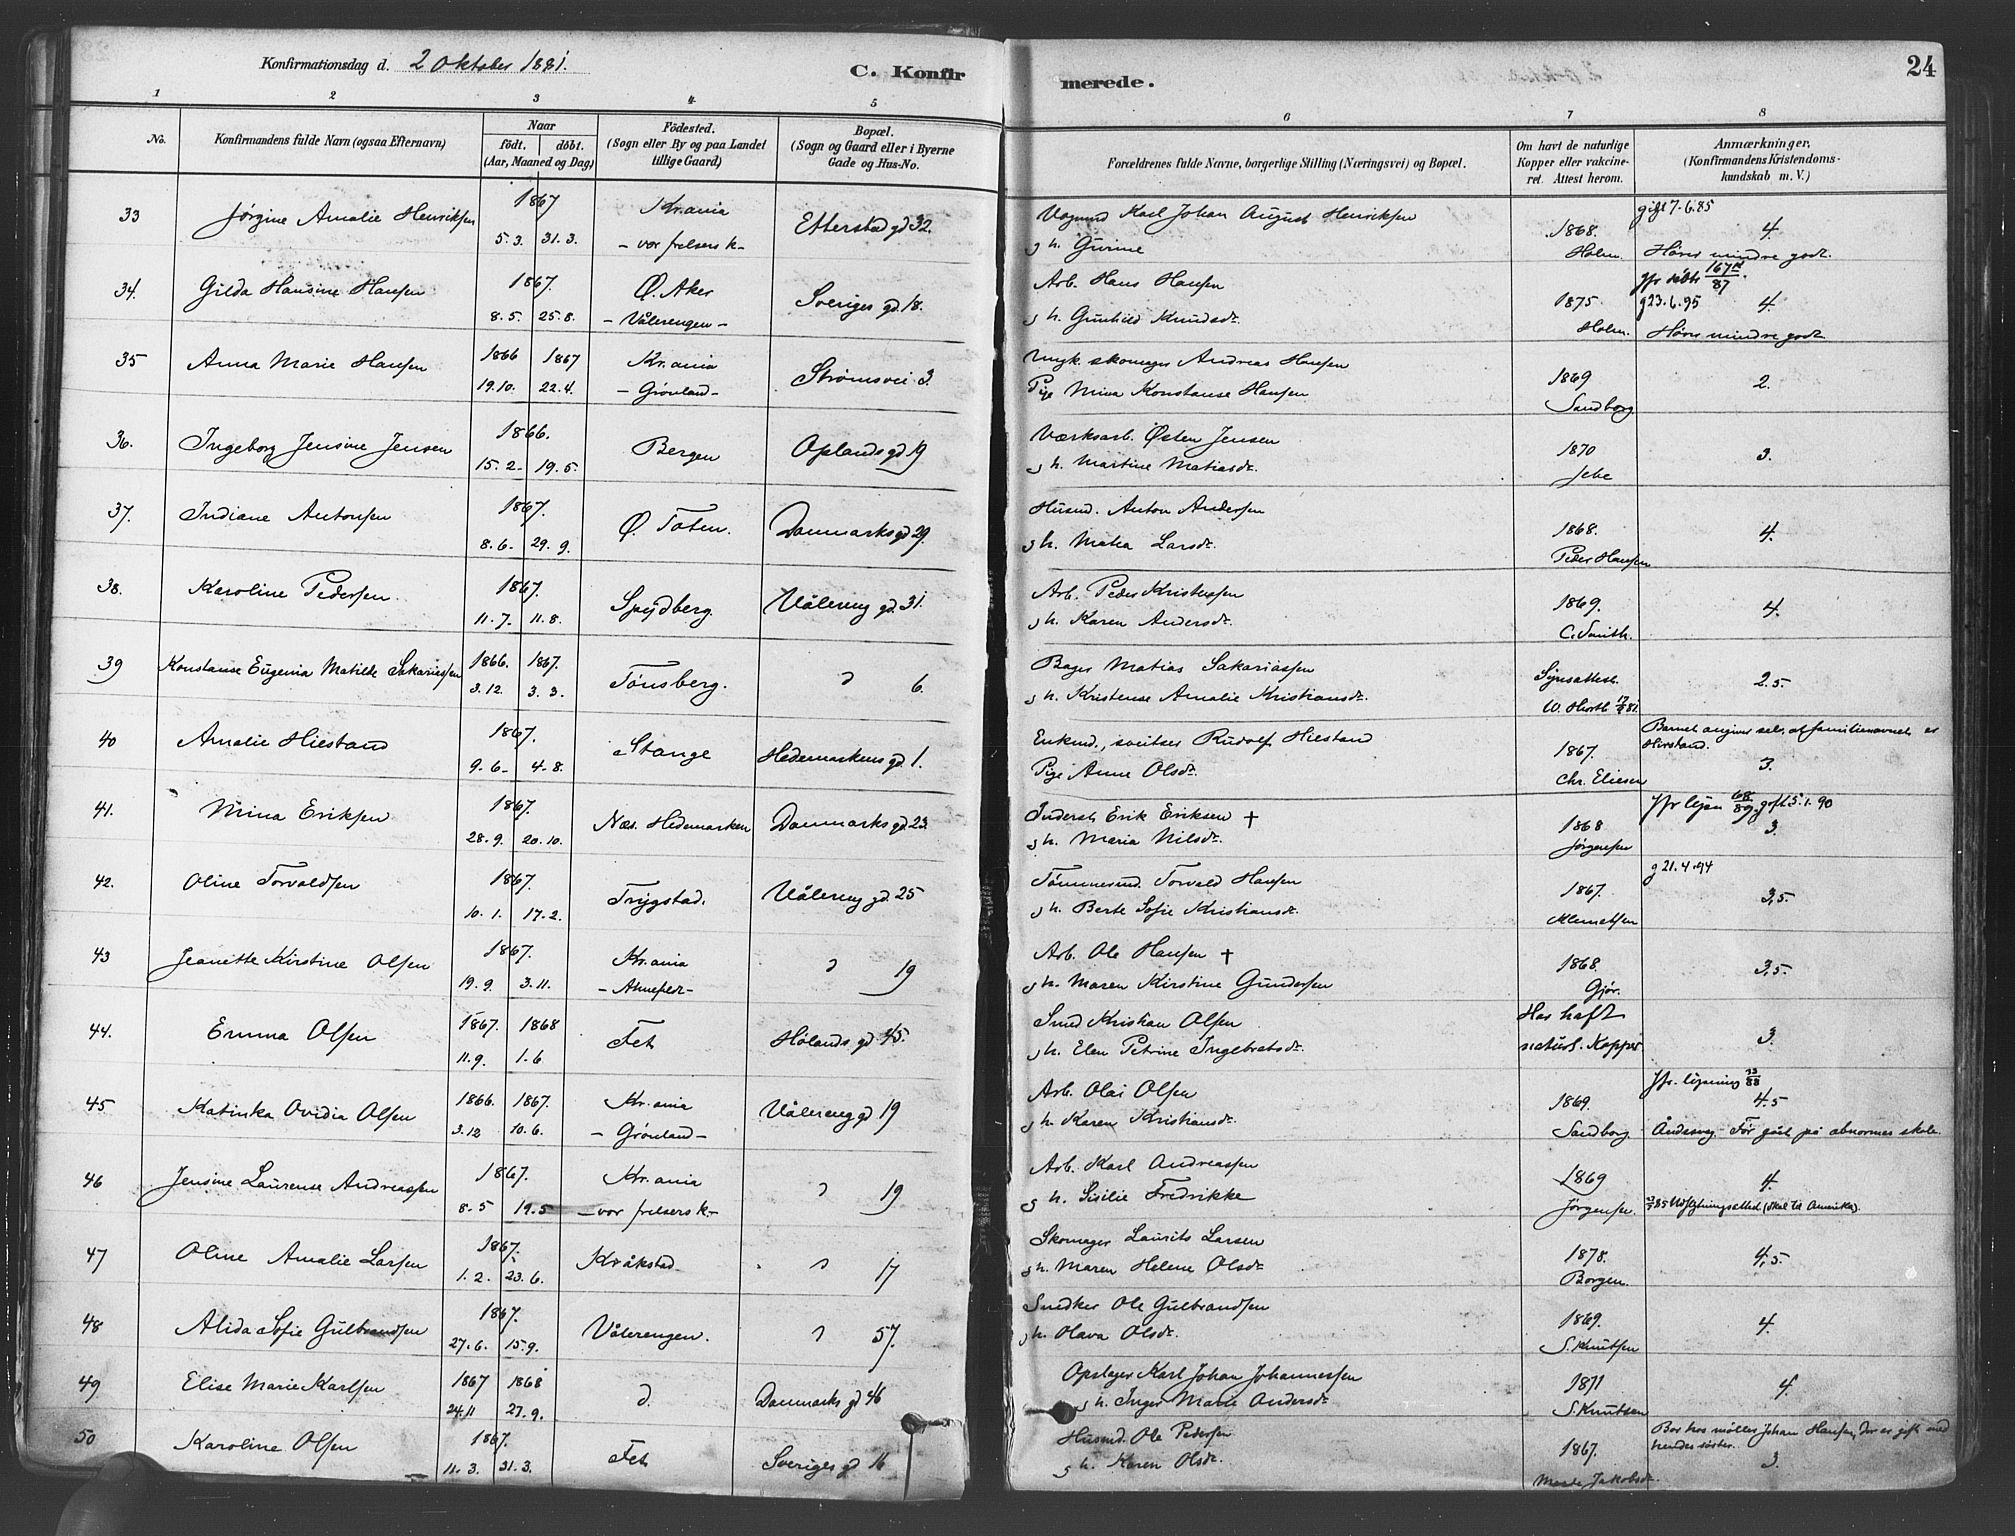 Konfirmationsdag d. 2 Oktober 1881.
C. Konfir
merede.
24
1 2 3 4 5 6 7 8
No.
Konfirmandens fulde Navn (ogsaa Efternavn)
Naar
födt. döbt.
(Aar, Maaned og Dag)
Födested.
(Sogn eller By og paa Landet
tillige Gaard)
Bopæl.
(Sogn og Gaard eller i Byerne
Gade og Hus-No.
Forældrenes fulde Navne, borgerlige Stilling (Næringsvei) og Bopæl.
Om havt de naturlige
Kopper eller vakcine-
ret. Attest herom.
Anmærkninger,
(Konfirmandens Kristendoms-
kundskab m. V.)
33 Jørgine Amalie Henriksen 1867 Kr.ania Etterstad gd 32. Vognmd Karl Johan August Henriksen gift 7-6.85
5.3. 31.3. - vor frelsers k - g h. Gurine 1868. Holm. 4. Hører mindre godt.
34. Gilda Hansine Hansen 1867. Ø. Aker Sveriges gd. 18. Arb. Hans Hansen Jfr 167/87.
8.5. 25.8. - Vålerengen - g h. Gunhild Knudsdr. 1875 Holm. g 23.6.95 4. Hører mindre godt
35 Anna Marie Hansen 1866 1867 Kr.ania Strømsvei 3. Ungk. skomager Andreas Hansen
19.10. 22.4. - Grönland - Pige Mina Konstanse Hansen 1869 Sandborg 2.
36. Ingeborg Jensine Jensen 1866. Bergen Oplands gd 19 Værksarb. Østen Jensen
15.2. 19.5. g h. Martine Matiasdr. 1870 3.
37. Indiane Antonsen 1867. Ø. Toten. Danmarks gd 29. Husmd. Anton Andersen
8.6. 29.9. g h. Larsdr. 1868. Peder Hansen 4.
38. Karoline Pedersen. 1867. Spydberg. Vålereng gd. 31. Arb. Peder Kristensen
11.7. 11.8. g h. Karen Andersdr. 1869. C. Smith. 4.
39 Konstanse Eugenia Matilde Sakariassen 1866. 1867. Tönsberg. " 6. Bager Matias Sakariassen
3.12. 3.3. g h. Kristense Amalie Kristiansdr. Synsattest. 2.5.
40 Amalie Hiestand 1867. Stange Hedemarkens gd. 1. Enkmd., sveitser Rudolf Hiestand Barnet angiver selv, at familienavnet er Hirstand.
9.6. 4.8. Pige Anne Olsdr. 1867. Chr. Eliesen 3.
41. Mina Eriksen 1867. Næs. Hedemarken Danmarks gd. 23. Inderst Erik Eriksen † Jfr lysn 68/89. gift 5.1.90
28.9. 20.10. g h. Maria Nilsdr. 1868 Jørgensen 3.
42. Oline Torvaldsen 1867. Trygstad. Vålereng gd. 25 Tömmermd. Torvald Hansen g 21.4.94
10.1. 17.2. g h. Berte Sofie Kristiansdr. 1867. Klemetsen 3,5.
43 Jeanette Kirstine Olsen 1867. Kr.ania " 19 Arb. Ole Hansen †
19.9. 3.11. g h. Maren Kirstine Gundersen 1868. Gjör. 3,5.
44. Emma Olsen 1867. 1868 Fet Hölands gd 45. Smed Kristian Olsen Har haft
11.9. 1.6. g h. Elen Petrine Ingebretsdr. naturl. Kopper. 3.
45 Katinka Ovidia Olsen 1866. 1867. Kr.ania Vålereng gd 19 Arb. Olai Olsen Jfr. lysning 73/88
3.12 10.6. - Grönland - g h. Karen Kristiansdr. 1869. Sandborg. 4.5 Åndssvag. Før gået på abnormes skole.
46 Jensine Laurense Andreassen 1867. Kr.ania " 19 Arb. Karl Andreassen
8.5 19.5 - vor frelsers k.- g h. Sisilie Fredrikke 1869 Jørgensen. 4. Udflytningsattest (skal til Amerika).
47 Oline Amalie Larsen 1867. Kråkstad " 17 Skomager Laurits Larsen
1.2. 23.6. g h. Maren Helene Olsdr. 1878. Borgen. 4,5.
48 Alida Sofie Gulbrandsen 1867. Vålerengen. " 57. Snedker Ole Gulbrandsen
27.6. 15.9. g h. Olava Olsdr. 1869. S. Knutsen 4.
49 Elise Marie Karlsen 1867 1868 " Danmarks gd 46 Opslager Karl Johan Johannessen
24.11 27.9. g h. Inger Marie Andersdr. 1871 S. Knutsen 4.
50 Karoline Olsen 1867. Fet Sveriges gd 16 Husmd. Ole Pedersen Bor hos møller Johan Hansen, der er gift med
11.3. 31.3. g h. Karen Olsdr. 1867. Jakobsdr. hendes søster. 3.